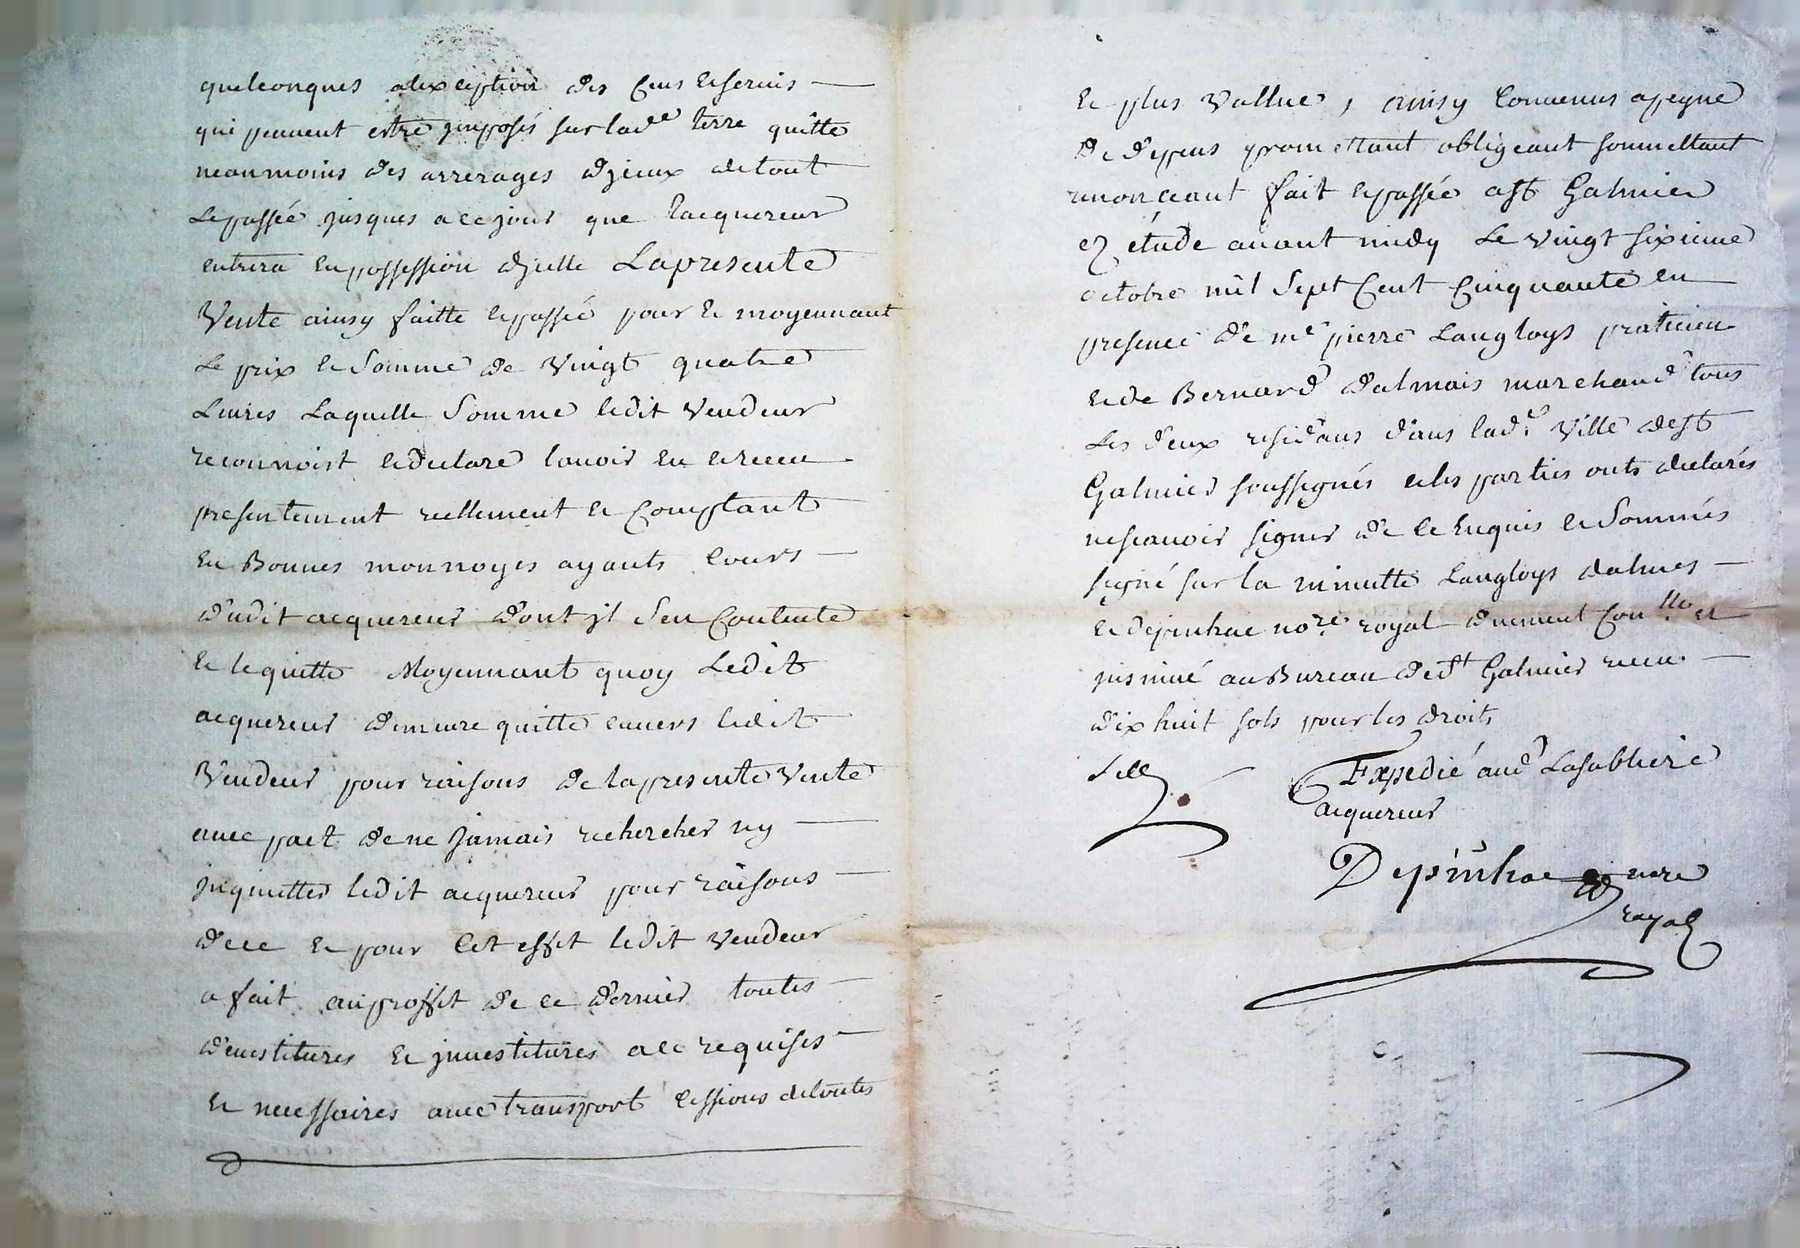 quelconques alexception des Cens et servis
qui peuvent estre jmposés sur lad.e terre quitte
neanmoins des arrerages djceux de tout
le passée jusques a ce jour que lacquereur
entrera en possession djcelle La presente
Vente ainsy faitte et passée pour et moyennant
Le prix et Somme de Vingt quatre
Livres Laquelle Somme ledit Vendeur
reconnoist et declare lavoir eu et receu
presentement reellement et Comptant
en Bonnes monnoyes ayants Cours
dudit acquereur dont jl Sen Contente
et le quitte Moyennant quoy Ledit
acquereur demeure quitte envers ledit
Vendeur pour raisons de la presente Vente
avec pact de ne Jamais rechercher ny
jnquietter ledit acquereur pour raisons
de ce et pour Cet effet ledit Vendeur
a fait au proffit de ce dernier toutes
devestitures et jnvestitures a ce requises
et necessaires avec transport Cessions de toutes
et plus Vallue, ainsy Convenus a peyne
de depens promettant obligeant soumettant
renonceant fait et passée a St Galmier
ez étude avant midy Le Vingt sixieme
octobre mil Sept Cent Cinquante en
presence de me pierre Langloys praticien
et de Bernard dalmais marchand tous
Les deux residans dans lad.e Ville de St
Galmier soussignés et les parties onts declarés
ne scavoir signer de ce Enquis et Sommés
signé sur la minutte Langloys dalmes
et depinhac no.re royal duement Con.lle et
jnsinué au Bureau de St Galmier receu
dix huit sols pour les droits
Expedié aud Lasabliere
acquereur
Depinhac nore
royal